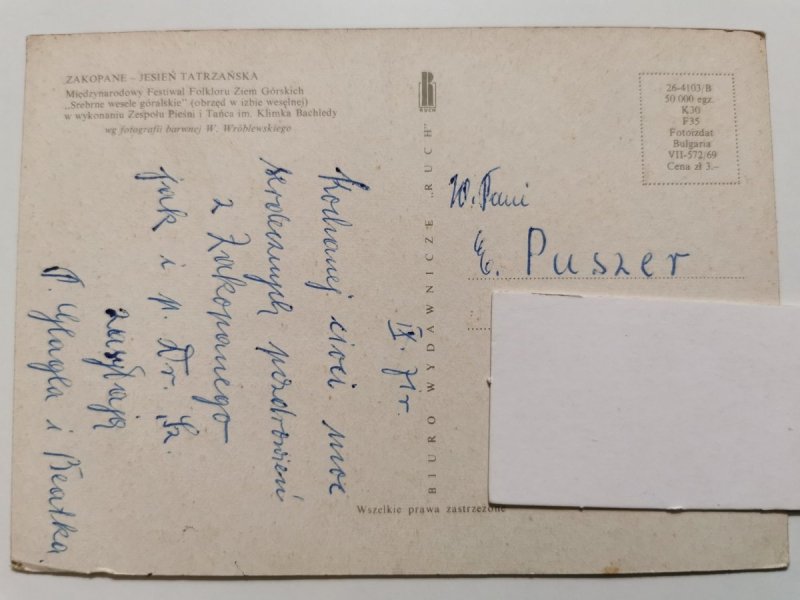 ZAKOPANE – JESIEŃ TATRZAŃSKA
Międzynarodowy Festiwal Folkloru Ziem Górskich
„Srebrne wesele góralskie” (obrzęd w izbie weselnej)
w wykonaniu Zespołu Pieśni i Tańca im. Klimka Bachledy
wg fotografii barwnej W. Wróblewskiego
RUCH
BIURO WYDAWNICZE „RUCH”
26-4103/B
50 000 egz.
K30
F35
Fotoizdat
Bulgaria
VII-572/69
Cena zł 3.–
IX. 71 r.
Kochanej cioci moc
serdecznych pozdrowień
z Zakopanego
jak i p. Dr. Sz.
zasyłają
i Beatka.
W. Pani
E. Puszer
Wszelkie prawa zastrzeżone